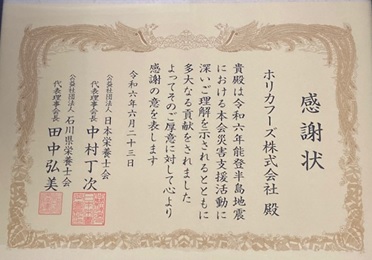 感謝状
ホリカフーズ株式会社 殿
貴殿は令和六年能登半島地震
における本会災害支援活動に
深いご理解を示されるとともに
多大なる貢献をされました
よってそのご厚意に対して心より
感謝の意を表します
令和六年六月二十三日
公益社団法人 日本栄養士会
代表理事会長 中村丁次
公益社団法人 石川県栄養士会
代表理事会長 田中弘美